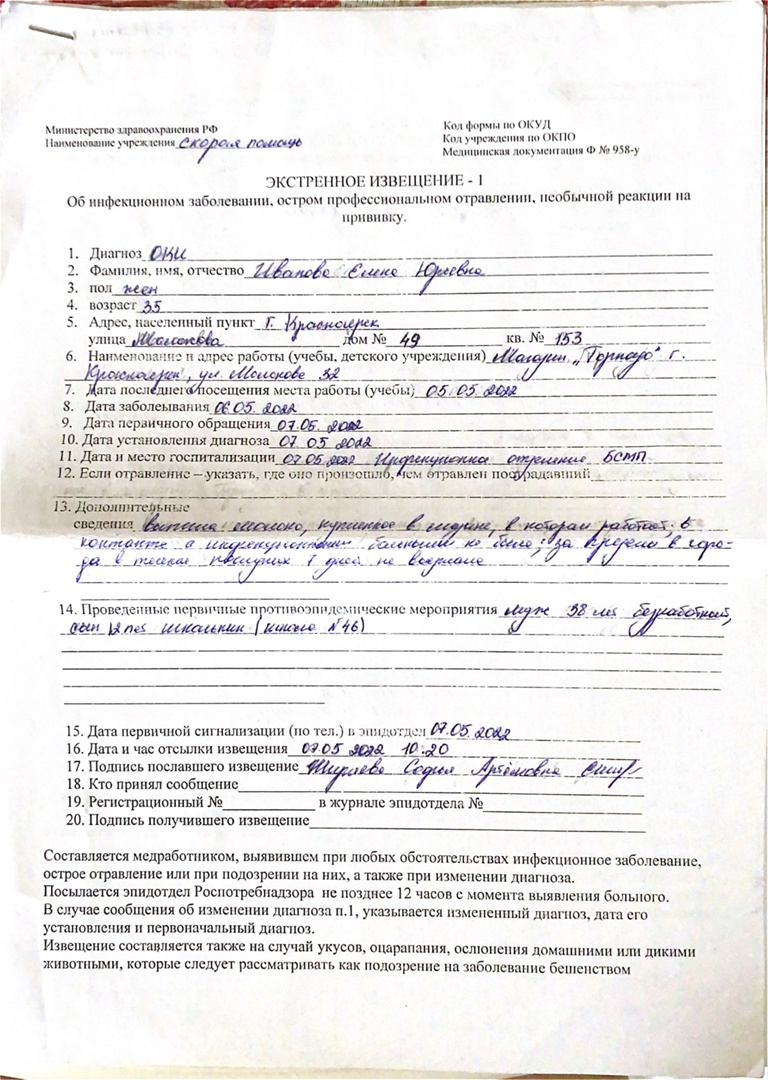 Министерство здравоохранения РФ
Наименование учреждения скорая помощь
Код формы по ОКУД
Код учреждения по ОКПО
Медицинская документация Ф № 058-у
ЭКСТРЕННОЕ ИЗВЕЩЕНИЕ - 1
Об инфекционном заболевании, остром профессиональном отравлении, необычной реакции на
прививку.
1. Диагноз ОКИ
2. Фамилия, имя, отчество Иванова Елена Юрьевна
3. пол жен
4. возраст 35
5. Адрес, населенный пункт г. Красноярск
улица Молокова дом № 49 кв. № 153
6. Наименование и адрес работы (учебы, детского учреждения) Магазин „Торнадо" г.
Красноярск, ул. Молокова 32
7. Дата последнего посещения места работы (учебы) 05.05.2022
8. Дата заболеывания 06.05.2022
9. Дата первичного обращения 07.05.2022
10. Дата установления диагноза 07 05 2022
11. Дата и место госпитализации 07.05.2022 Инфекционное отделение БСМП
12. Если отравление – указать, где оно произошло, чем отравлен пострадавший
13. Дополнительные
сведения выпила молоко, купленное в магазине, в котором работает; в
контакте с инфекционными больными не была; за пределы города
в течение последних 7 дней не выезжала
14. Проведенные первичные противоэпидемические мероприятия муж 38 лет безработный,
сын 12 лет школьник (школа №46)
15. Дата первичной сигнализации (по тел.) в эпидотдел 07.05.2022
16. Дата и час отсылки извещения 07.05 2022 10:20
17. Подпись пославшего извещение София Артёмовна
18. Кто принял сообщение
19. Регистрационный № в журнале эпидотдела №
20. Подпись получившего извещение
Составляется медработником, выявившем при любых обстоятельствах инфекционное заболевание,
острое отравление или при подозрении на них, а также при изменении диагноза.
Посылается эпидотдел Роспотребнадзора не позднее 12 часов с момента выявления больного.
В случае сообщения об изменении диагноза п.1, указывается измененный диагноз, дата его
установления и первоначальный диагноз.
Извещение составляется также на случай укусов, оцарапания, ослюнения домашними или дикими
животными, которые следует рассматривать как подозрение на заболевание бешенством